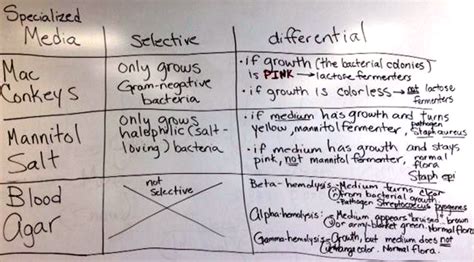 Specialized
Media
Selective
differential
Mac
Conkeys
only grows
Gram-negative
bacteria
• if growth (the bacterial colonies)
is PINK → lactose fermenters
• if growth is colorless → not lactose
fermenters
Mannitol
Salt
only grows
halophilic (salt-
loving) bacteria
• if medium has growth and turns
yellow, mannitol fermenter, pathogen
Staph aureus
• if medium has growth and stays
pink, not mannitol fermenter, normal
flora
Staph epi
Blood
Agar
not
Selective
Beta-hemolysis → Medium turns clear
from bacterial growth
Pathogen Streptococcus pyogenes
Alpha-hemolysis: Medium appears "bruised", brown
or army-blanket green. Normal flora
Gamma-hemolysis → Growth, but medium does not
change color. Normal flora.